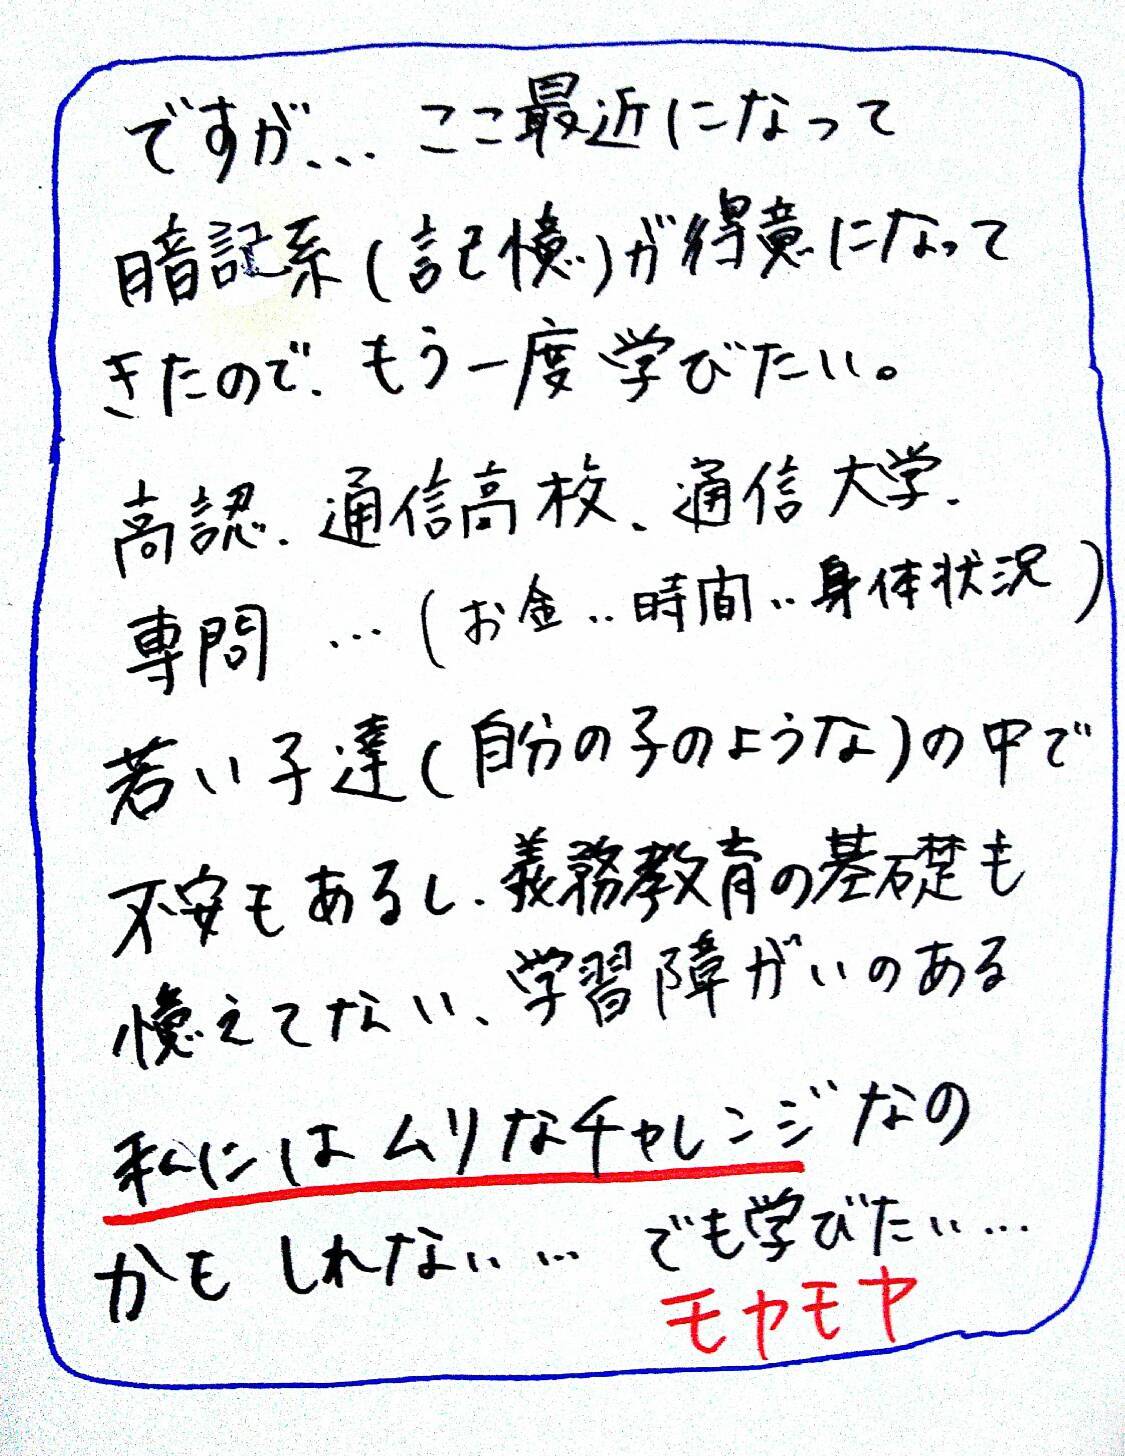 ですが... ここ最近になって
暗記系(記憶)が得意になって
きたので、もう一度学びたい。
高認、通信高校、通信大学、
専問 ...(お金..時間..身体状況)
若い子達(自分の子のような)の中で
不安もあるし、義務教育の基礎も
憶えてない、学習障がいのある
私にはムリなチャレンジなの
かもしれない... でも学びたい...
モヤモヤ